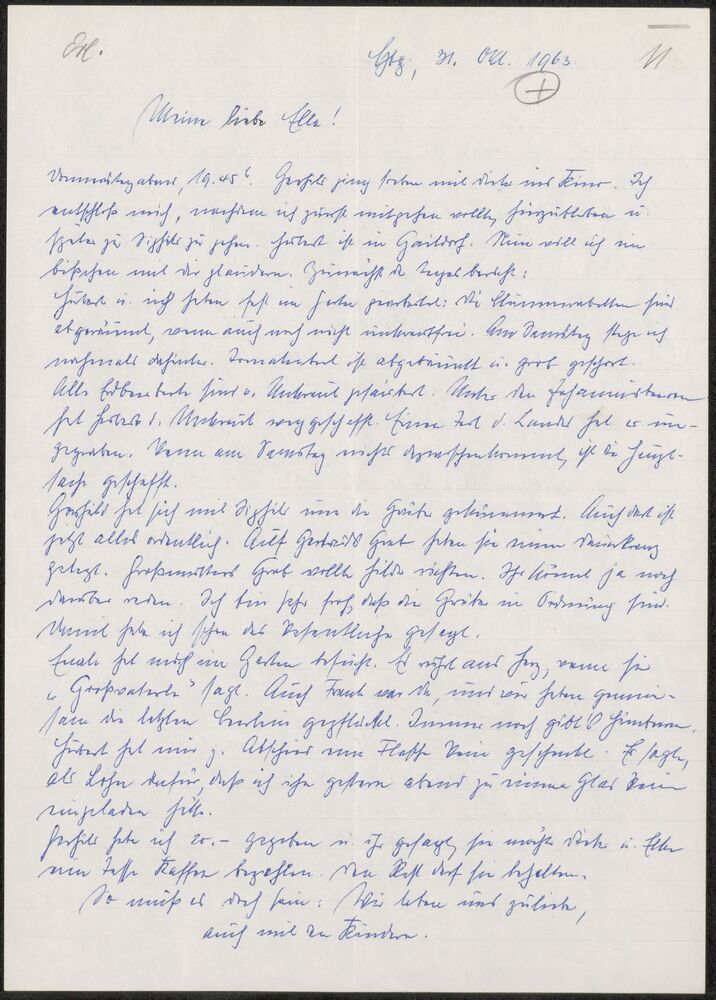 Erl.
Hbg., 31. Okt. 1963
11
Meine liebe Ella!
Donnerstagabend, 19.45h. Gerhild ging soeben mit ins Kino. Ich
entschloß mich, nachdem ich zuerst mitgehen wollte, hierzubleiben u.
später zu Sighild zu gehen. Hubert ist in Gaildorf. Nun will ich ein
bißchen mit dir plaudern. Zunächst der Tagesbericht:
Hubert u. ich haben fest im Garten gearbeitet: Die Blumenrabatten sind
abgeräumt, wenn auch noch nicht unkrautfrei. Am Samstag steige ich
nochmals dahinter. Tomatenbeet ist abgeräumt u. grob gehackt.
Alle Erdbeerbeete sind v. Unkraut gesäubert. Unter den Johannisbeeren
hat Hubert d. Unkraut weggeschafft. Einen Teil d. Landes hat er um-
gegraben. Wenn am Samstag nichts dazwischenkommt, ist die Haupt-
sache geschafft.
Gerhild hat sich mit Sighild um die Gräber gekümmert. Auch dort ist
jetzt alles ordentlich. Auf Gertruds Grab haben sie einen
gelegt. Großmutters Grab wollte Hilde richten. Ihr könnt ja noch
darüber reden. Ich bin sehr froh, daß die Gräber in Ordnung sind.
Damit habe ich schon das Wesentliche gesagt.
hat mich im Garten besucht. Es rührt ans Herz, wenn sie
„Großvaterle" sagt. Auch Frank war da, und wir haben gemein-
sam die letzten gepflückt. Immer noch gibt's Himbeeren.
Hubert hat mir z. Abschied eine Flasche Wein geschenkt. Er sagte,
als Lohn dafür, daß ich ihn gestern abend zu einem Glas Wein
eingeladen hätte.
Gerhild habe ich 20.– gegeben u. ihr gesagt, sie möchte u.
eine Tasse Kaffee bezahlen. Den Rest darf sie behalten.
So muß es doch sein: Wir leben uns zuliebe,
auch mit den Kindern.